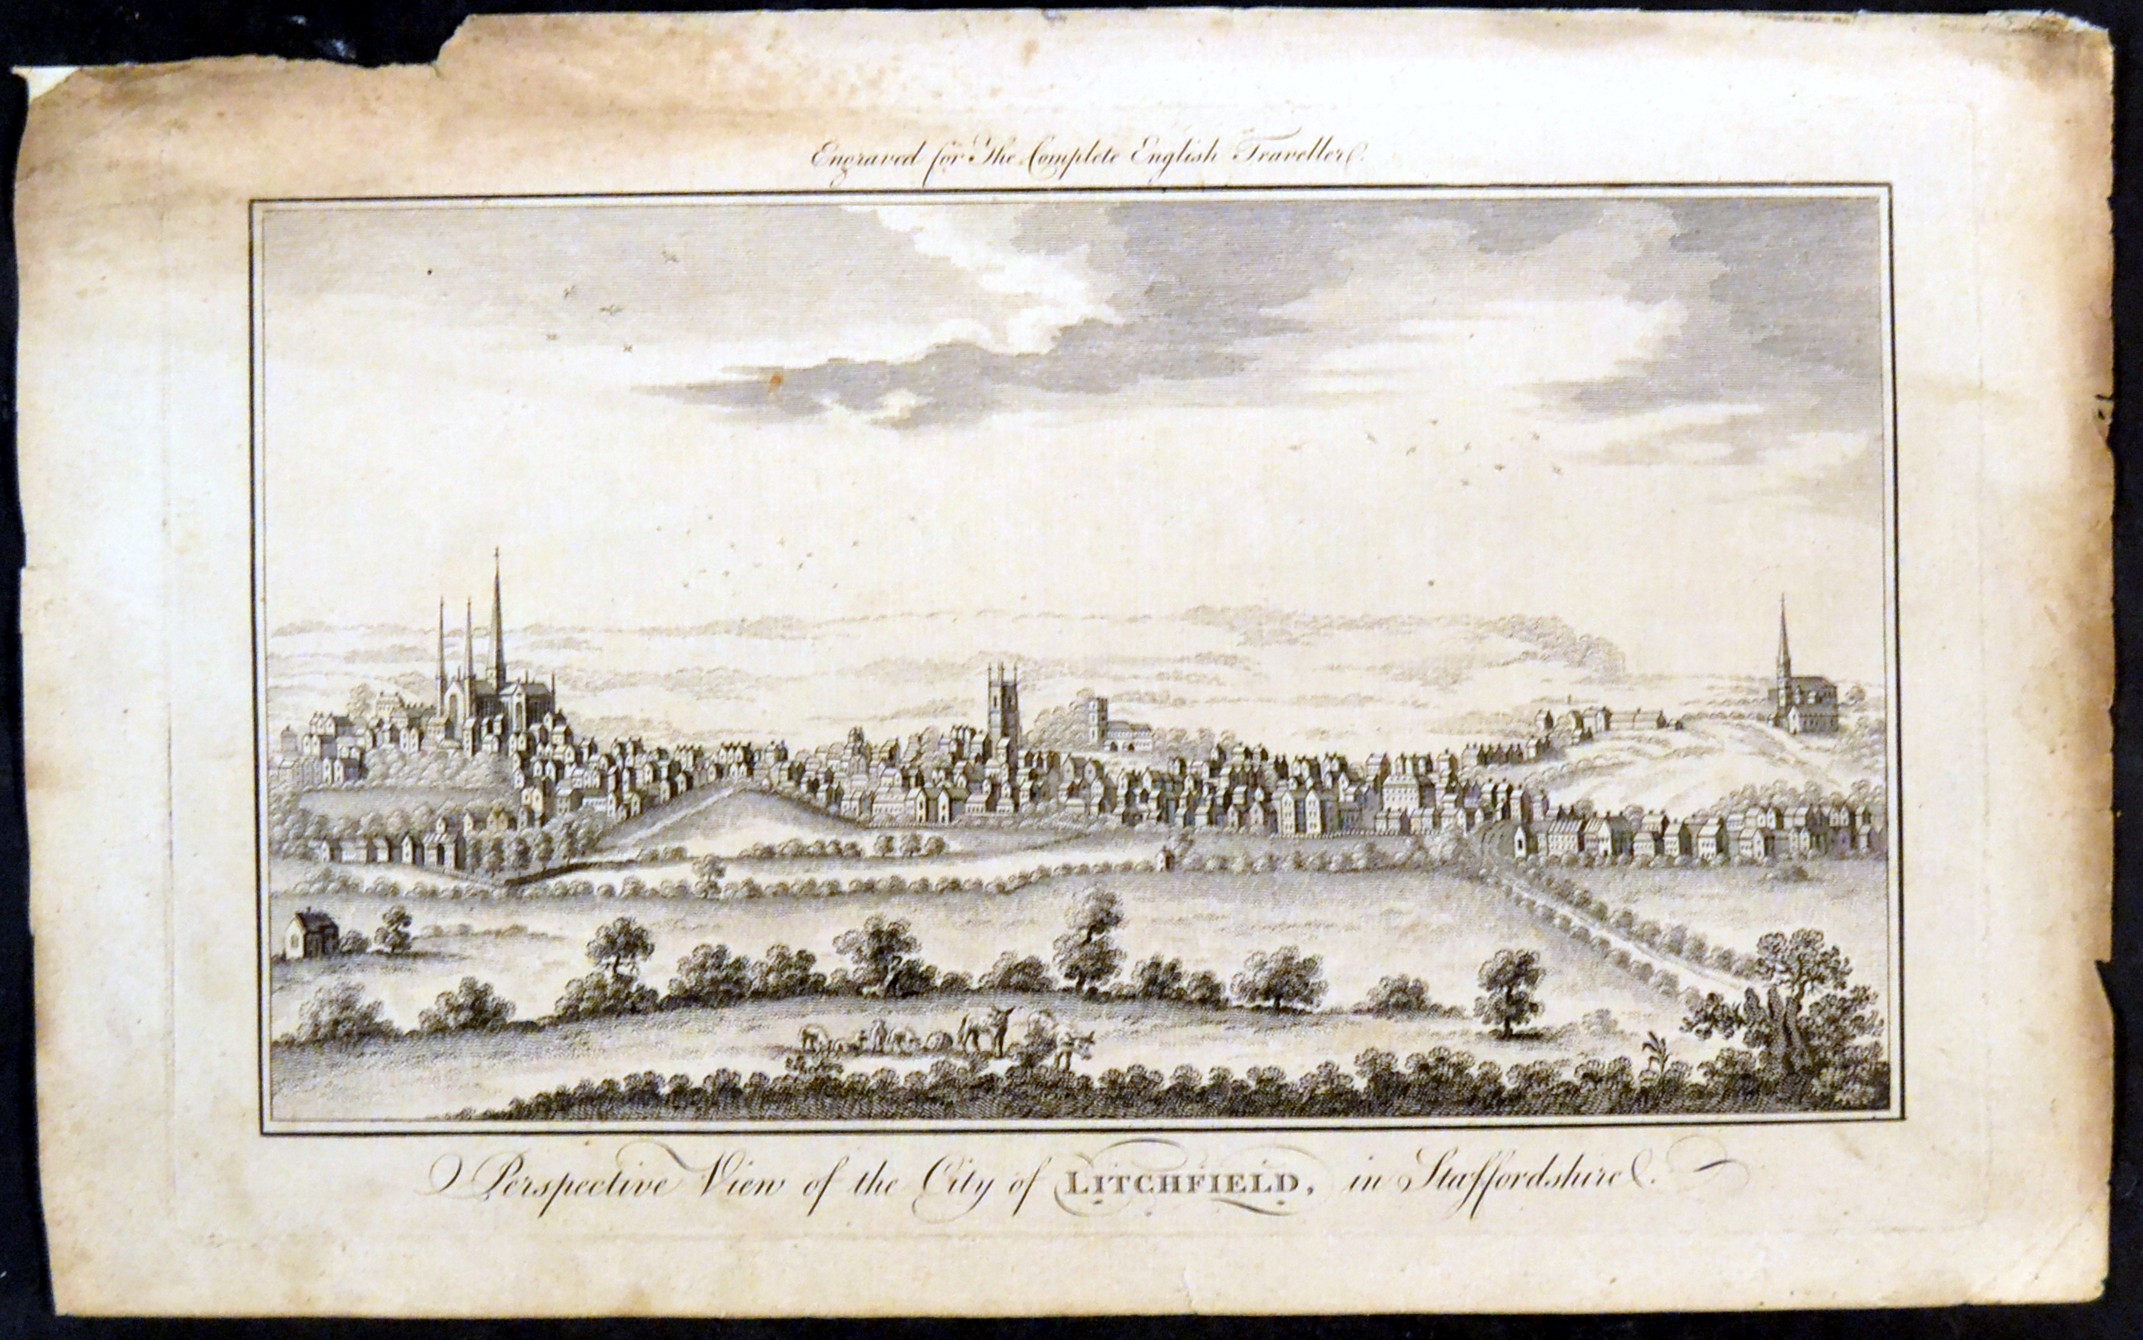 Engraved for The Complete English Traveller.
Perspective View of the City of LITCHFIELD, in Staffordshire.